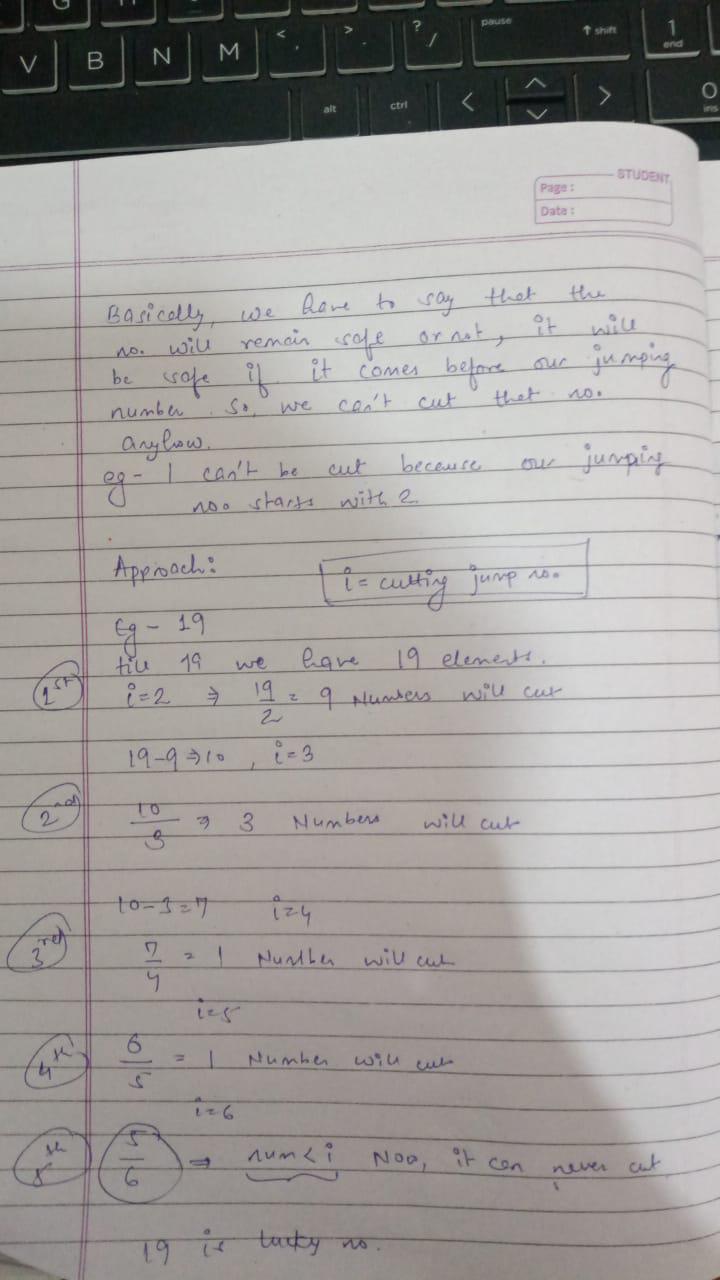 V B N M < , > . ? / pause ↑ shift 1 end
alt ctrl < ^ > 0 ins
STUDENT
Page :
Date :
Basically, we have to say that the
no. will remain safe or not, it will
be safe if it comes before our jumping
number. So, we can't cut that no.
anyhow.
eg - 1 can't be cut because our jumping
no. starts with 2
Approach:
i = cutting jump no.
Eg - 19
till 19 we have 19 elements.
1st i=2 ⇒ 19/2 = 9 Numbers will cut
19-9⇒10, i=3
2nd 10/3 ⇒ 3 Numbers will cut
10-3=7 i=4
3rd 7/4 = 1 Number will cut
i=5
4th 6/5 = 1 Number will cut
i=6
5th 5/6 ⇒ num<i Noo, it can never cut
19 is lucky no.